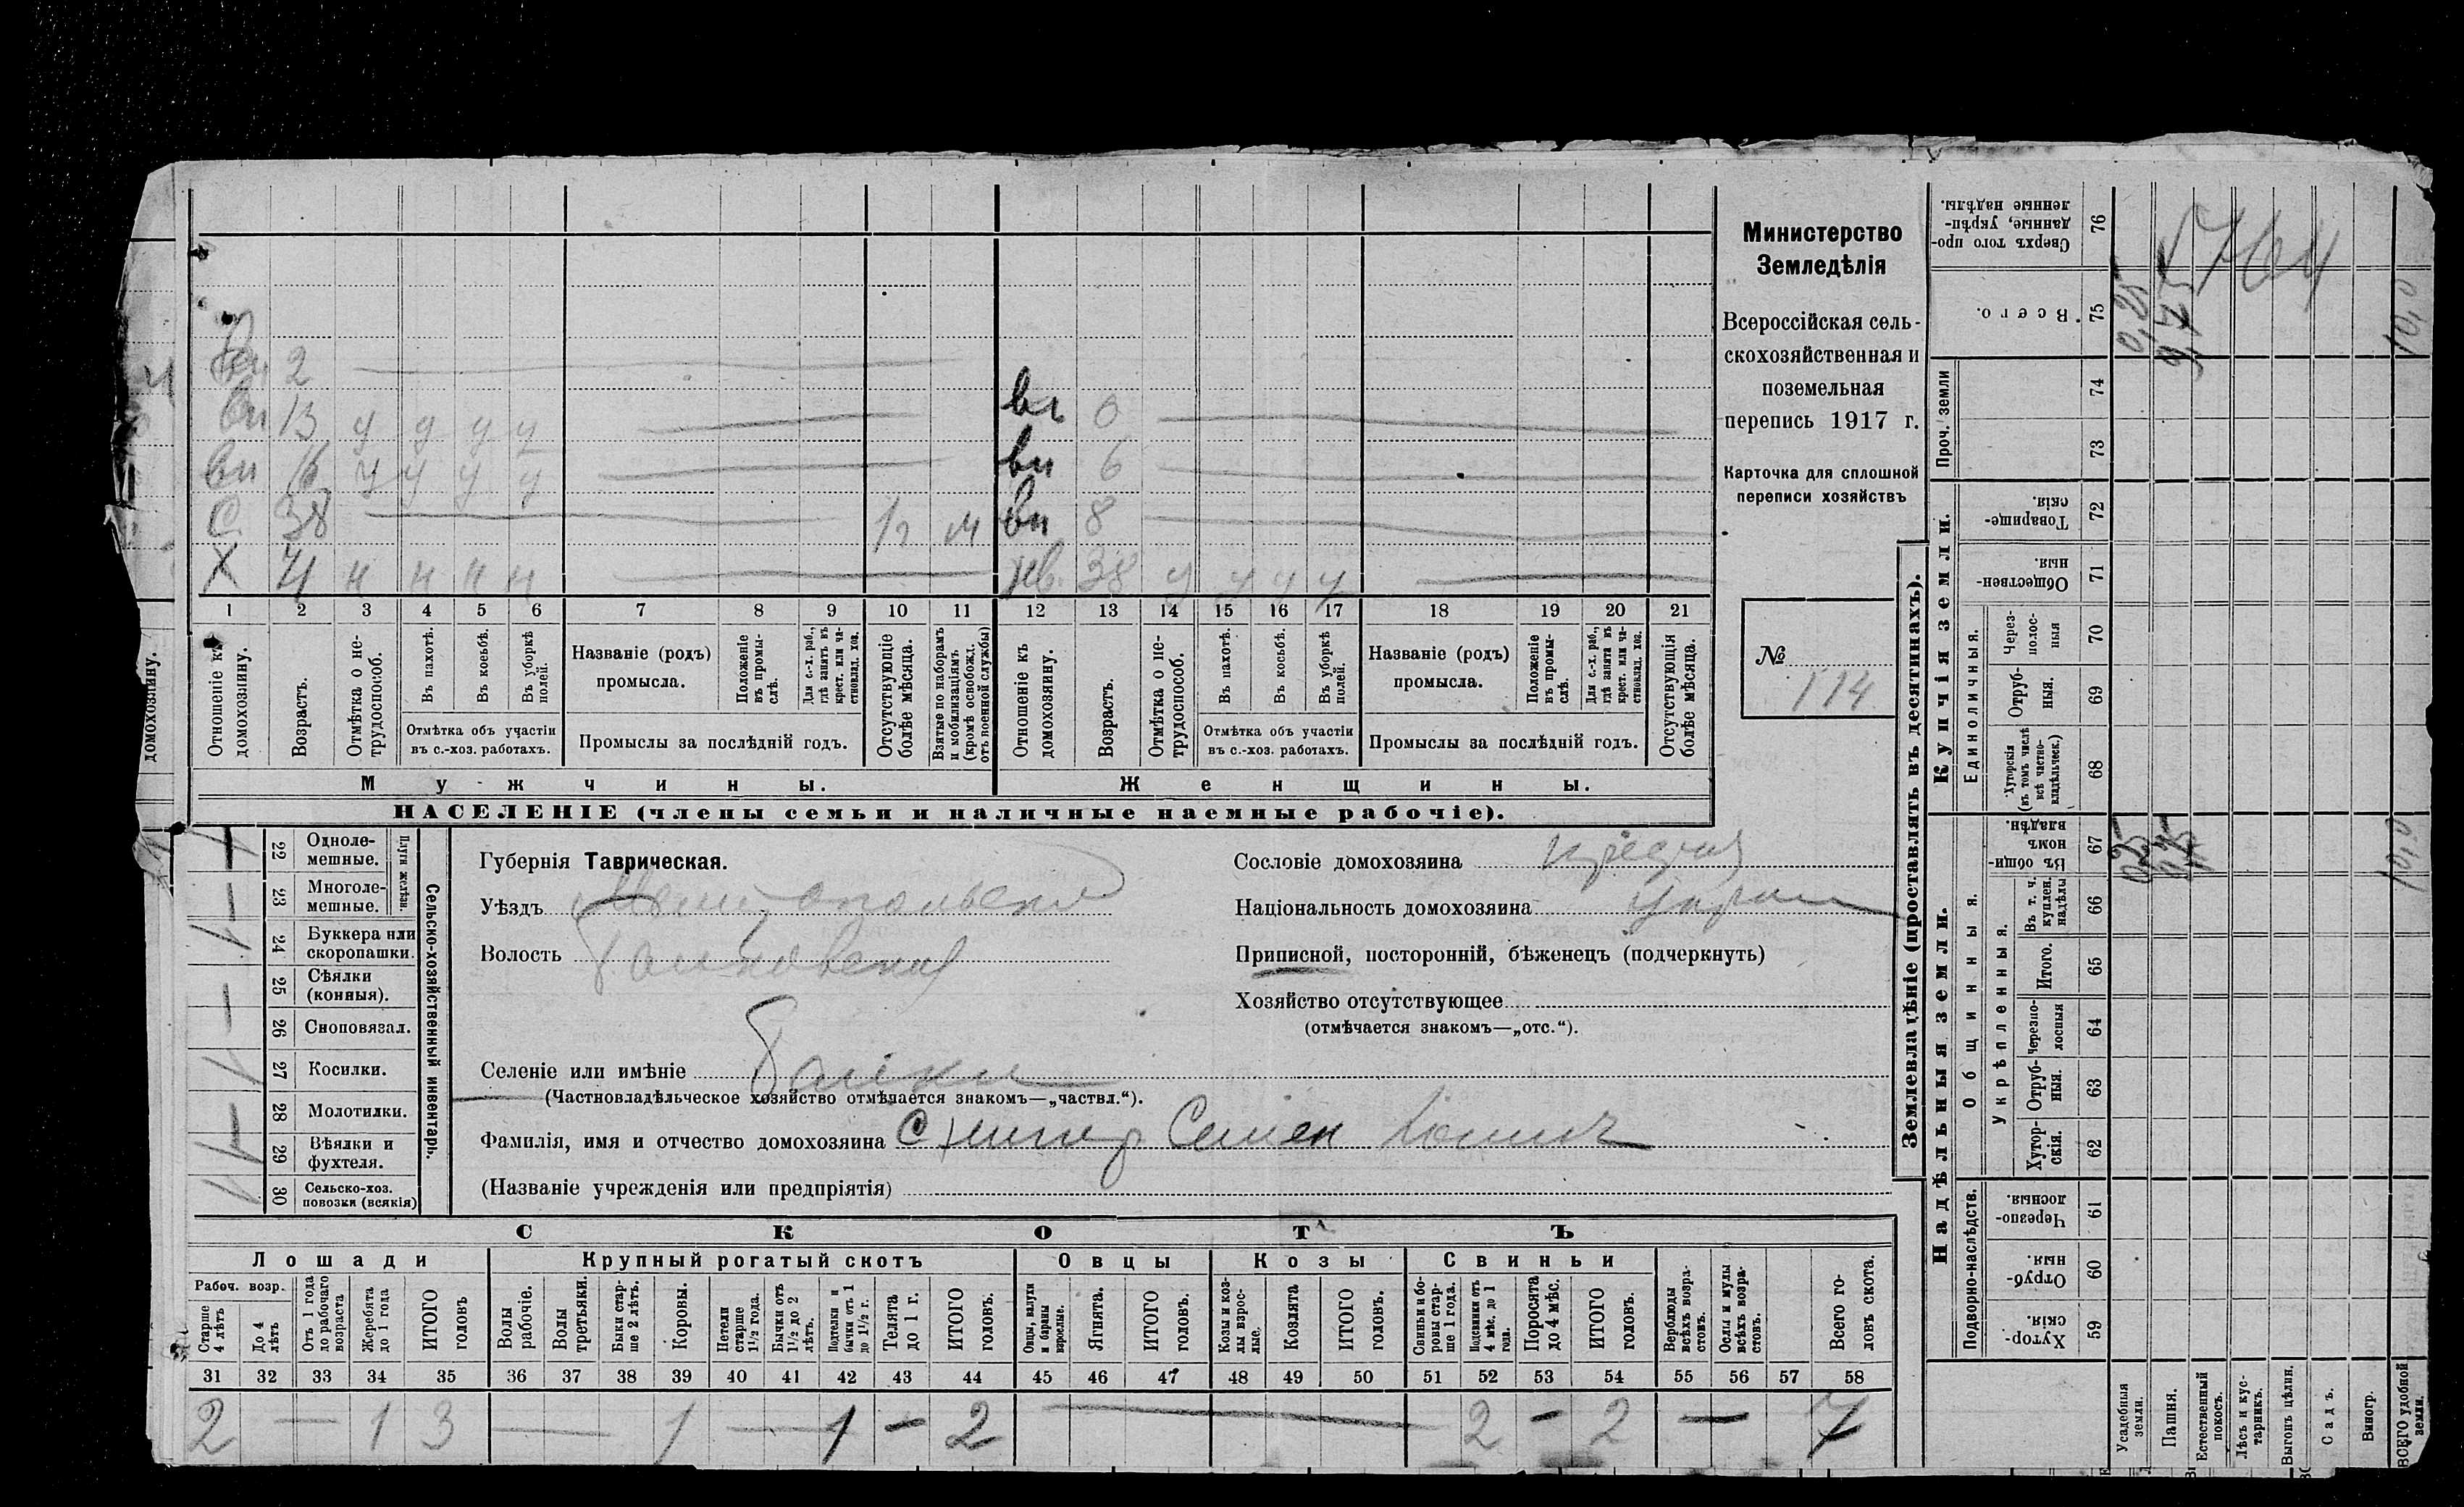 вн 2
вн 13 у у у у
вн 16 у у у у
С 38 1г м
Х 71 н н н н
вн 0
вн 6
вн 8
жв 38 у у у у
1 2 3 4 5 6 7 8 9 10 11 12 13 14 15 16 17 18 19 20 21
Отношеніе къ домохозяину.
Возрастъ.
Отмѣтка о нетрудоспособ.
Въ пахотѣ.
Въ косьбѣ.
Въ уборкѣ полей.
Отмѣтка объ участіи
въ с.-хоз. работахъ.
Названіе (родъ)
промысла.
Положеніе въ промыслѣ.
Для с.-х. раб., гдѣ занятъ въ крест. или частновлад. хоз.
Промыслы за послѣдній годъ.
Отсутствующіе болѣе мѣсяца.
Взятые по наборамъ и мобилизаціямъ (кромѣ освобожд. отъ военной службы)
Отношеніе къ домохозяину.
Возрастъ.
Отмѣтка о нетрудоспособ.
Въ пахотѣ.
Въ косьбѣ.
Въ уборкѣ полей.
Отмѣтка объ участіи
въ с.-хоз. работахъ.
Названіе (родъ)
промысла.
Положеніе въ промыслѣ.
Для с.-х. раб., гдѣ занята въ крест. или частновлад. хоз.
Промыслы за послѣдній годъ.
Отсутствующія болѣе мѣсяца.
Мужчины.
Женщины.
НАСЕЛЕНІЕ (члены семьи и наличные наемные рабочіе).
домохозяину.
Министерство
Земледѣлія
Всероссійская сель-
скохозяйственная и
поземельная
перепись 1917 г.
Карточка для сплошной
переписи хозяйствъ
№
114
Сельско-хозяйственный инвентарь.
Плуги желѣзн.
22 Одноле-
мешные.
23 Многоле-
мешные.
24 Буккера или
скоропашки.
25 Сѣялки
(конныя).
26 Сноповязал.
27 Косилки.
28 Молотилки.
29 Вѣялки и
фухтеля.
30 Сельско-хоз.
повозки (всякія)
Губернія Таврическая.
Уѣздъ Мелитопольскій
Волость Балковская
Селеніе или имѣніе Балки
(Частновладѣльческое хозяйство отмѣчается знакомъ—„частвл.“).
Фамилія, имя и отчество домохозяина Семен
(Названіе учрежденія или предпріятія)
Сословіе домохозяина
Національность домохозяина Украин
Приписной, посторонній, бѣженецъ (подчеркнуть)
Хозяйство отсутствующее
(отмѣчается знакомъ—„отс.“).
СКОТЪ
Лошади
Крупный рогатый скотъ
Овцы
Козы
Свиньи
Рабоч. возр.
Старше 4 лѣтъ
До 4 лѣтъ
Отъ 1 года до рабочаго возраста
Жеребята до 1 года
ИТОГО головъ
Волы рабочіе.
Волы третьяки.
Быки старше 2 лѣтъ.
Коровы.
Нетели старше 1½ года.
Бычки отъ 1½ до 2 лѣтъ.
Подтелки и бычки отъ 1 до 1½ г.
Телята до 1 г.
ИТОГО головъ.
Овцы, валухи и бараны взрослые.
Ягнята.
ИТОГО головъ.
Козы и козлы взрослые.
Козлята
ИТОГО головъ.
Свиньи и боровы старше 1 года.
Подсвинки отъ 4 мѣс. до 1 года.
Поросята до 4 мѣс.
ИТОГО головъ.
Верблюды всѣхъ возрастовъ.
Ослы и мулы всѣхъ возрастовъ.
Всего головъ скота.
31 32 33 34 35 36 37 38 39 40 41 42 43 44 45 46 47 48 49 50 51 52 53 54 55 56 57 58
2 — 1 3 — 1 — 1 — 2 — 2 — 2 — 7
Землевладѣніе (проставлять въ десятинахъ).
Надѣльныя земли.
Купчія земли.
Проч. земли
Подворно-наслѣдств.
Общинныя.
Укрѣпленныя.
Единоличныя.
Сверхъ того проданные, укрѣпленные надѣлы. 76
Всего. 75
74
73
Товарищескія. 72
Общественныя. 71
Черезполосныя 70
Отрубныя. 69
Хуторскія (въ томъ числѣ всѣ частновладѣльческ.) 68
Въ общиномъ владѣн. 67
Въ т. ч. куплен. надѣлы 66
Итого. 65
Черезполосныя 64
Отрубныя. 63
Хуторскія. 62
Черезполосныя. 61
Отрубныя. 60
Хуторскія. 59
Усадебныя земли.
Пашня.
Естественный покосъ.
Лѣсъ и кустарникъ.
Выгонъ цѣлин.
Садъ.
Виногр.
ВСЕГО удобной земли.
0,25
9,75
10,0
764
0,25
9,75
10,0